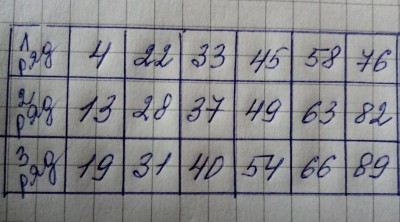 1 ряд 4 22 33 45 58 76
2 ряд 13 28 37 49 63 82
3 ряд 19 31 40 54 66 89